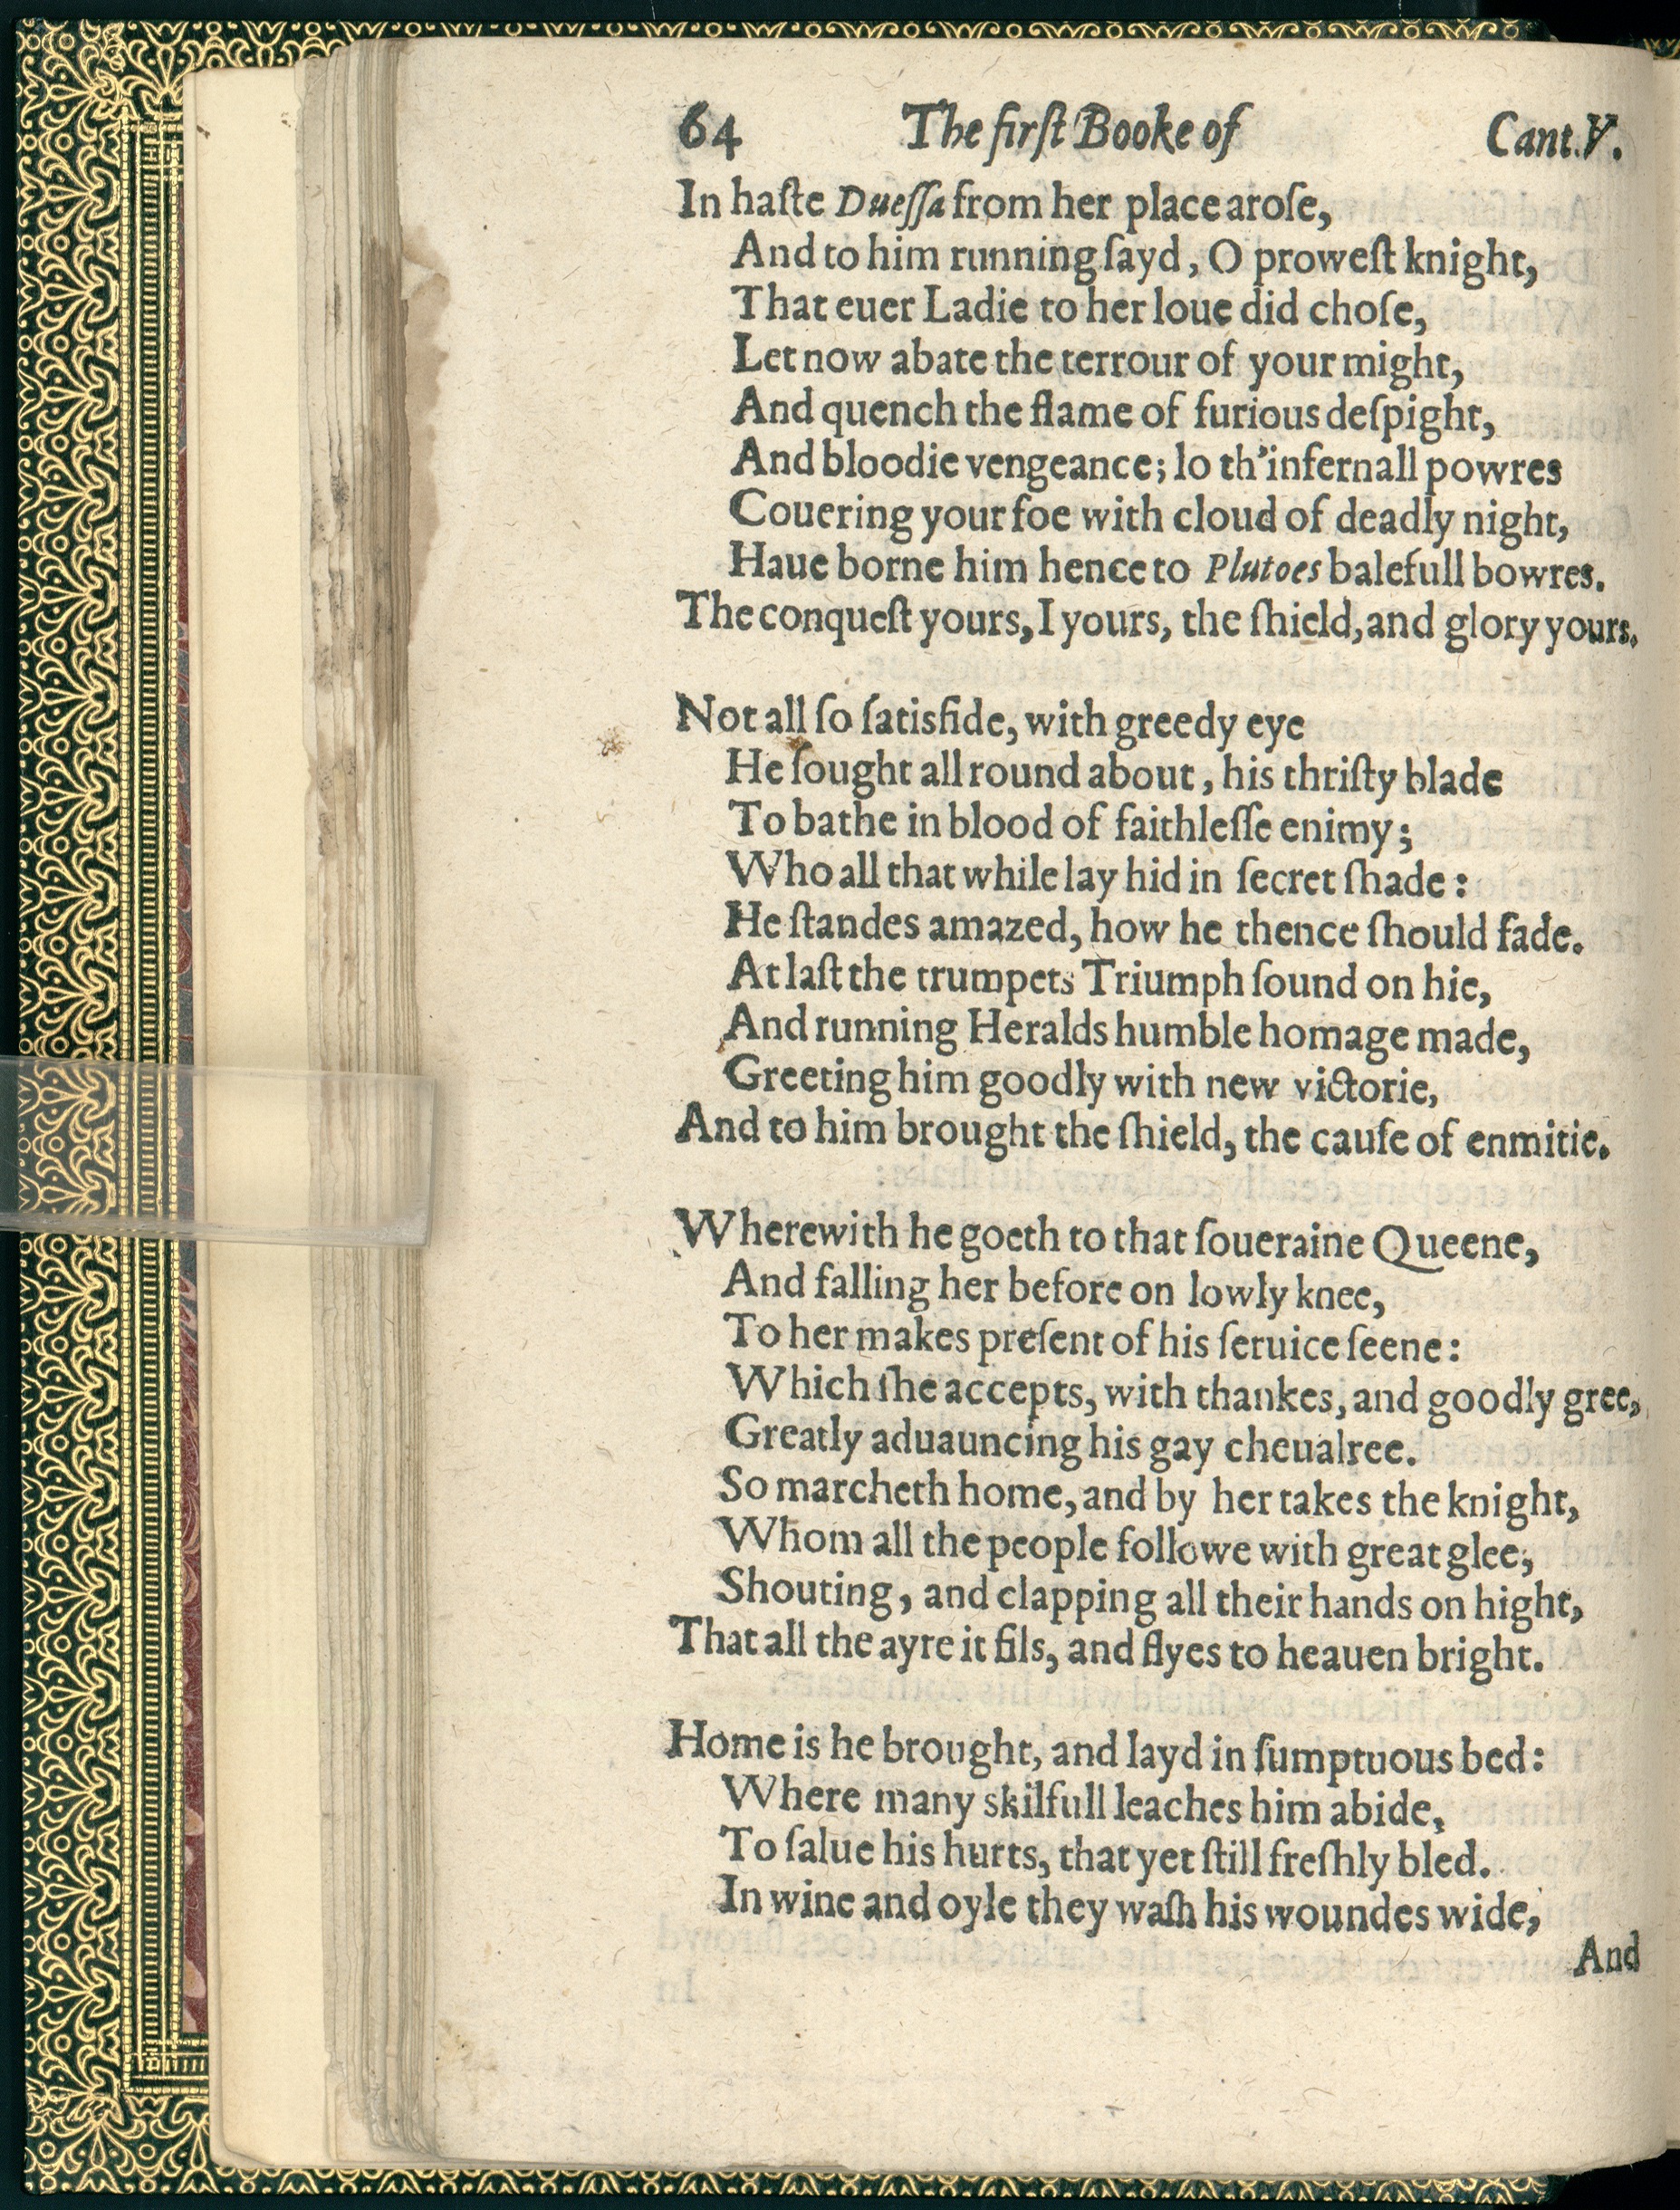 64 The firſt Booke of Cant. V.
In haſte Dueſſa from her place aroſe,
And to him running ſayd, O proweſt knight,
That euer Ladie to her loue did choſe,
Let now abate the terrour of your might,
And quench the flame of furious deſpight,
And bloodie vengeance; lo th'infernall powres
Couering your foe with cloud of deadly night,
Haue borne him hence to Plutoes balefull bowres.
The conqueſt yours, I yours, the ſhield, and glory yours.
Not all ſo ſatisfide, with greedy eye
He ſought all round about, his thriſty blade
To bathe in blood of faithleſſe enimy;
Who all that while lay hid in ſecret ſhade:
He ſtandes amazed, how he thence ſhould fade.
At laſt the trumpets Triumph ſound on hie,
And running Heralds humble homage made,
Greeting him goodly with new victorie,
And to him brought the ſhield, the cauſe of enmitie.
Wherewith he goeth to that ſoueraine Queene,
And falling her before on lowly knee,
To her makes preſent of his ſeruice ſeene:
Which ſhe accepts, with thankes, and goodly gree,
Greatly aduauncing his gay cheualree.
So marcheth home, and by her takes the knight,
Whom all the people followe with great glee,
Shouting, and clapping all their hands on hight,
That all the ayre it fils, and flyes to heauen bright.
Home is he brought, and layd in ſumptuous bed:
Where many skilfull leaches him abide,
To ſalue his hurts, that yet ſtill freſhly bled.
In wine and oyle they waſh his woundes wide,
And